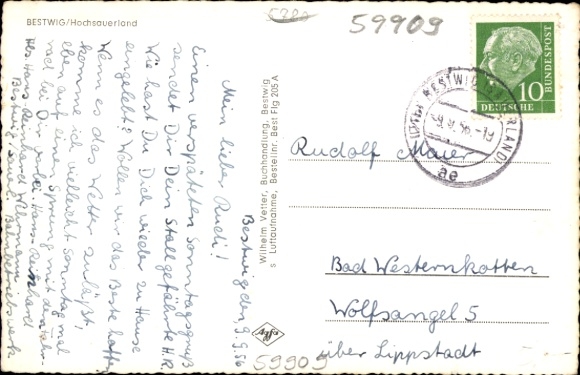 BESTWIG/Hochsauerland
59909
DEUTSCHE
BUNDESPOST
10
BESTWIG
ae
Rudolf Maier
Bad Westernkotten
Wolfsangel 5
über Lippstadt
59909
Agfa
Wilhelm Vetter, Buchhandlung, Bestwig
s Luftaufnahme, Bestellnr. Best Flg 205 A
Bestwig den, 9.9.56
Mein lieber Rudi!
Einen verspäteten Sonntagsgruß
sendet Dir Dein Stallgefährte H.R.
Wie hast Du Dich wieder zu Hause
eingelebt? Wollen wir das Beste hoffen,
Wenn es das Wetter zuläßt,
komme ich vielleicht Sonntag mal
eben auf einen Sprung mit dem
rad bei Dir vorbei. Hans-Reinhard
Abs. Hans-Reinhard
Bestwig